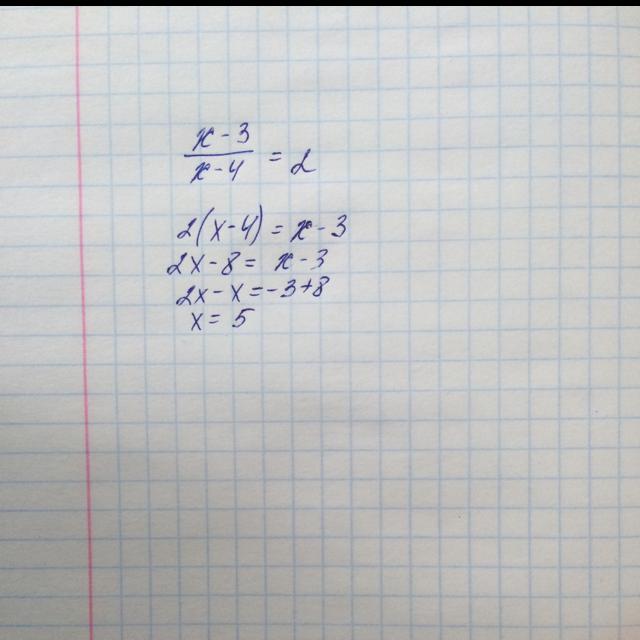 x - 3
x - 4 = 2
2(x - 4) = x - 3
2x - 8 = x - 3
2x - x = -3 + 8
x = 5